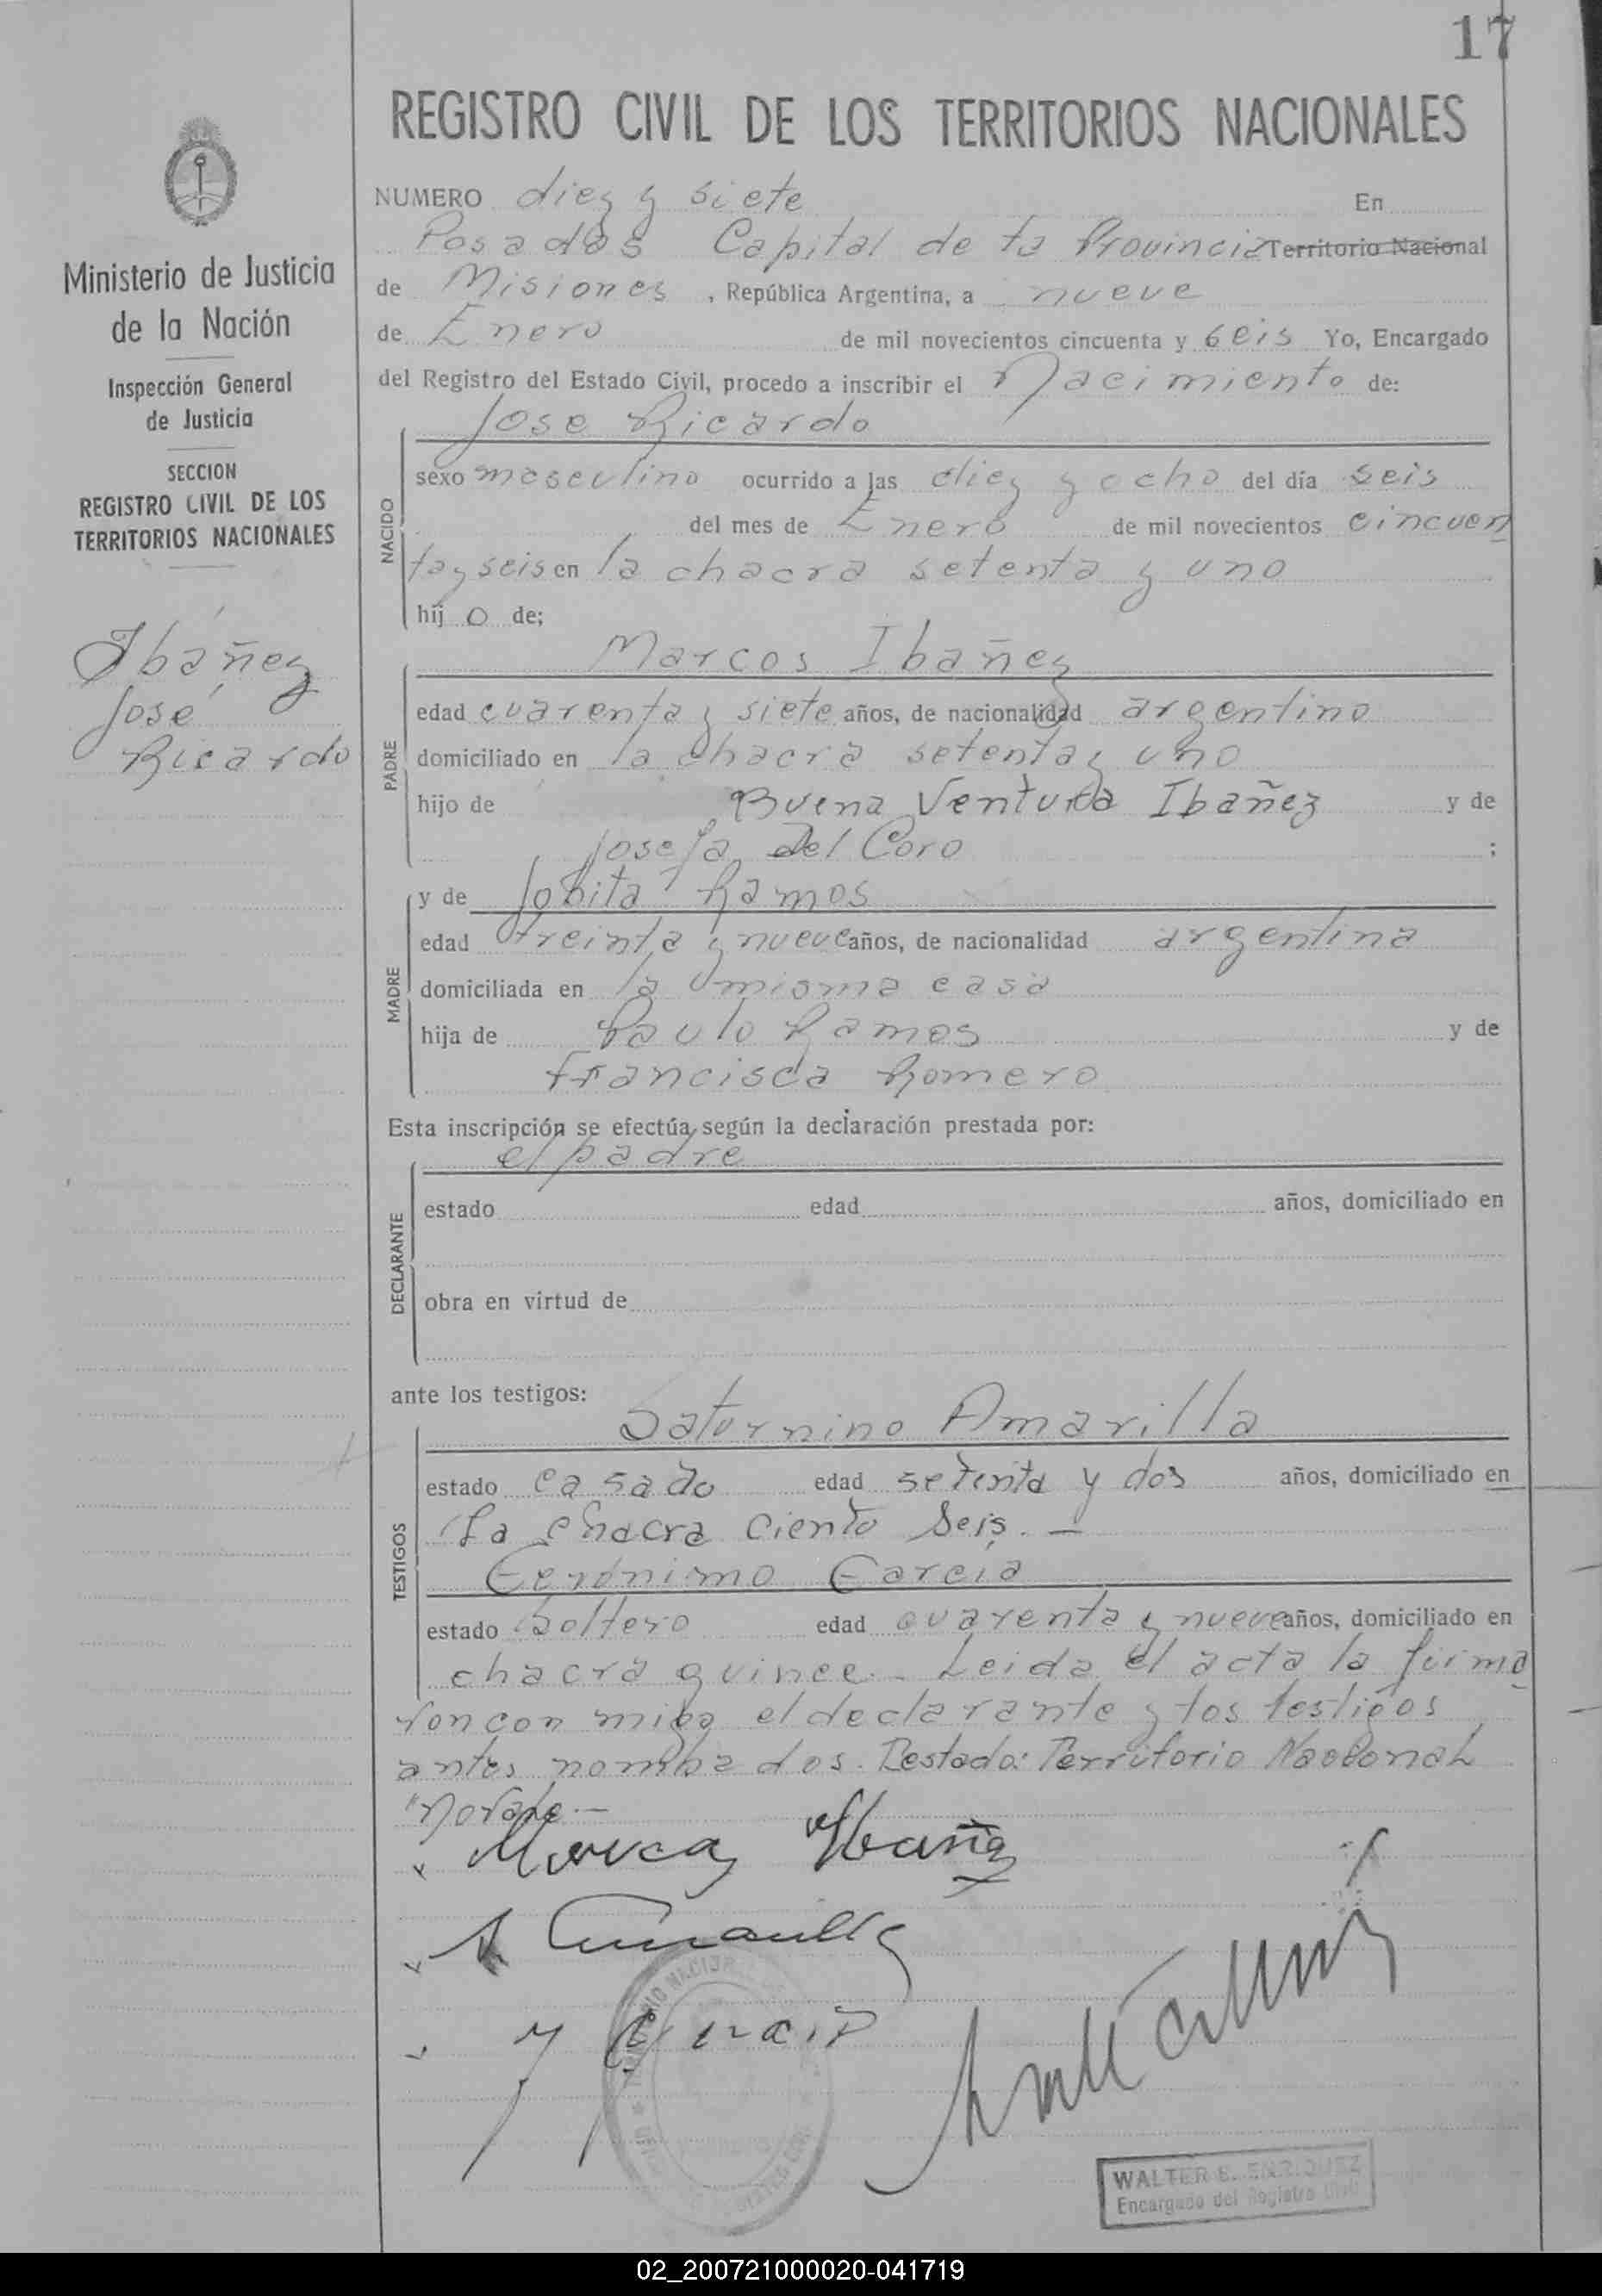 17
REGISTRO CIVIL DE LOS TERRITORIOS NACIONALES
NUMERO diez y siete En
Posadas Capital de la Provincia Territorio Nacional
de Misiones, República Argentina, a nueve
de Enero de mil novecientos cincuenta y seis Yo, Encargado
del Registro del Estado Civil, procedo a inscribir el Nacimiento de:
Jose Ricardo
NACIDO
sexo masculino ocurrido a las diez y ocho del día seis
del mes de Enero de mil novecientos cincuen
ta y seis en la chacra setenta y uno
hij o de;
Marcos Ibañez
PADRE
edad cuarenta y siete años, de nacionalidad argentino
domiciliado en la chacra setenta y uno
hijo de Buena Ventura Ibañez y de
Josefa Del Coro ;
MADRE
y de Jobita Ramos
edad treinta y nueve años, de nacionalidad argentina
domiciliada en la misma casa
hija de Paulo Ramos y de
Francisca Romero
Esta inscripción se efectúa según la declaración prestada por:
el padre
DECLARANTE
estado edad años, domiciliado en
obra en virtud de
ante los testigos:
Saturnino Amarilla
TESTIGOS
estado casado edad setenta y dos años, domiciliado en
La chacra ciento seis. —
Gerónimo Garcia
estado Soltero edad cuarenta y nueve años, domiciliado en
chacra quince. Leida el acta la firma
ron con migo el declarante y los testigos
antes nombrados. Testado: Territorio Nacional
Ministerio de Justicia
de la Nación
Inspección General
de Justicia
SECCION
REGISTRO CIVIL DE LOS
TERRITORIOS NACIONALES
Ibáñez
José
Ricardo
WALTER E. ENRIQUEZ
Encargado del Registro Civil
02_200721000020-041719